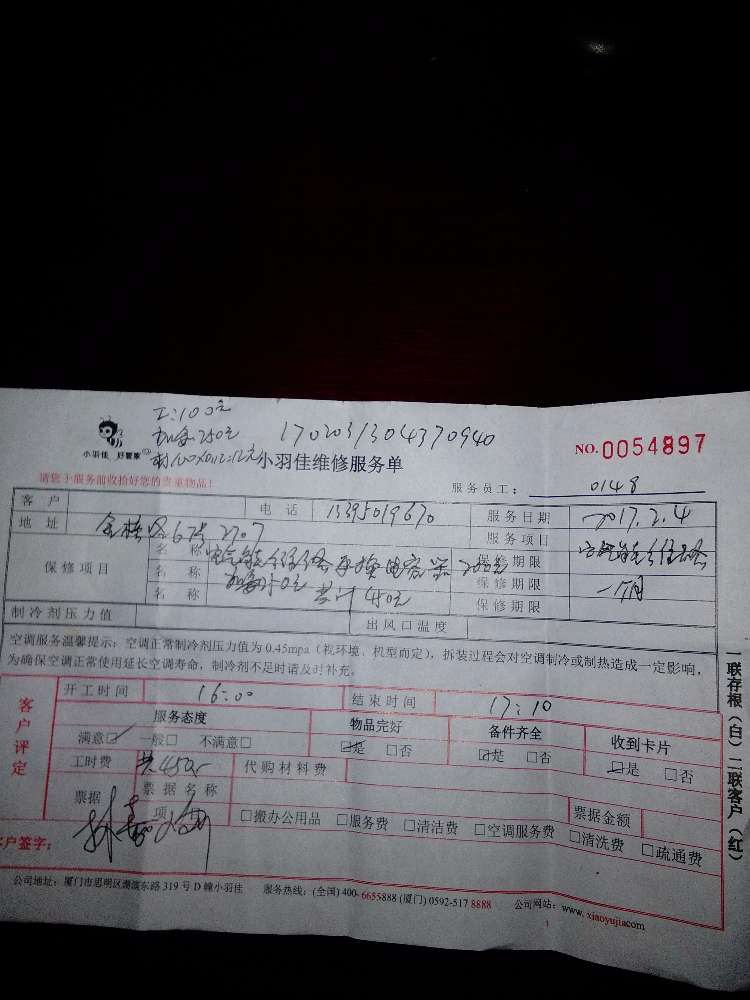 工:100元
加氟250元
1702031304370940
小羽佳 好管家
小羽佳维修服务单
NO.0054897
请您于服务前收拾好您的贵重物品!
服务员工: 0148
客户 电话 13395019670 服务日期 2017.2.4
地址 67号2707 服务项目
保修项目 名称 保修期限
名称 保修期限 一个月
名称 共计450元 保修期限
制冷剂压力值 出风口温度
空调服务温馨提示:空调正常制冷剂压力值为0.45mpa(视环境、机型而定),拆装过程会对空调制冷或制热造成一定影响,
为确保空调正常使用延长空调寿命,制冷剂不足时请及时补充。
客户评定
开工时间 16:00 结束时间 17:10
服务态度 物品完好 备件齐全 收到卡片
满意☑ 一般□ 不满意□ ☑是 □否 ☑是 □否 ☑是 □否
工时费 共450 代购材料费
票据 票据名称 票据金额
项目 □搬办公用品 □服务费 □清洁费 □空调服务费 □清洗费 □疏通费
客户签字:
公司地址:厦门市思明区湖滨东路319号D幢小羽佳 服务热线:(全国)400-6655888 (厦门)0592-517 8888 公司网站:www.xiaoyujia.com
一联存根(白)二联客户(红)